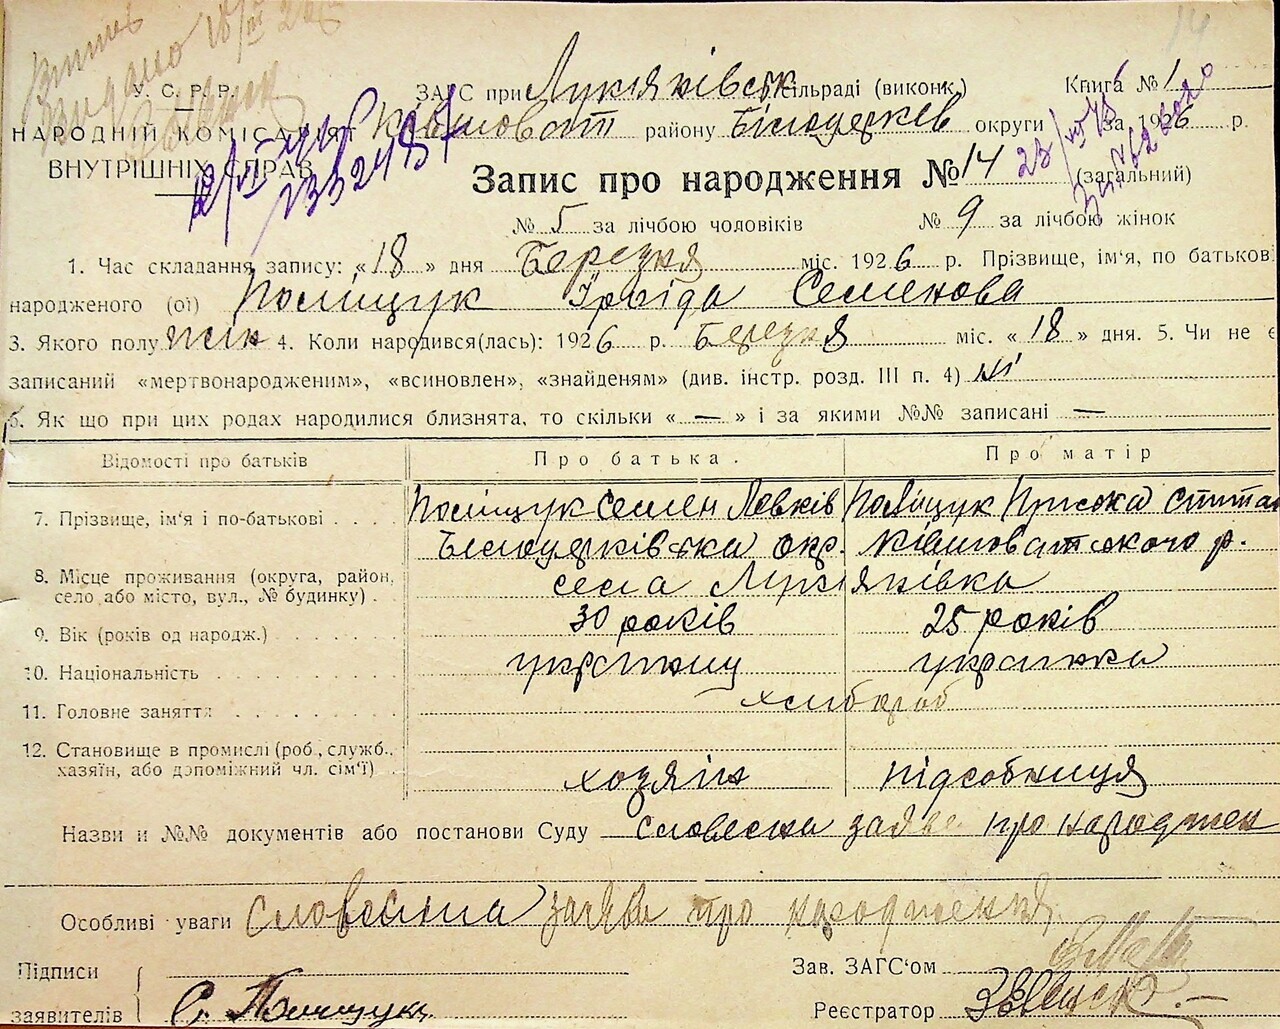 Видано 18/III 26 р.
14
У. С. Р. Р.
НАРОДНІЙ КОМІСАРІЯТ
ВНУТРІШНІХ СПРАВ
ЗАГС при Лукіянівськ сільраді (виконк.) Книга № 1
Ківшоват району Білоцерків округи за 1926 р.
Запис про народження № 14 (загальний)
№ 5 за лічбою чоловіків № 9 за лічбою жінок
1. Час складання запису: « 18 » дня Березня міс. 1926 р. Прізвище, ім'я, по батькові
народженого (ої) Поліщук Семенова
3. Якого полу жін 4. Коли народився(лась): 1926 р. Березня міс. « 18 » дня. 5. Чи не є
записаний «мертвонародженим», «всиновлен», «знайденям» (див. інстр. розд. III п. 4) ні
6. Як що при цих родах народилися близнята, то скільки « — » і за якими №№ записані —
Відомості про батьків Про батька. Про матір
7. Прізвище, ім'я і по-батькові . . . . Поліщук Семен Левків Поліщук Пріська
Білоцерківська окр. Ківшоватського р.
8. Місце проживання (округа, район, село або місто, вул., № будинку) . села Лукіянівка
9. Вік (років од народж.) . . . . . . 30 років 25 років
10. Національність . . . . . . . . . українец українка
11. Головне заняття . . . . . . . . . хлібороб
12. Становище в промислі (роб., служб., хазяїн, або допоміжний чл. сім'ї) хозяін підсобниця
Назви и №№ документів або постанови Суду словесна заява про народжен
Особливі уваги Словесна заява про народження
Підписи Зав. ЗАГС'ом
заявителів С. Поліщук Реєстратор